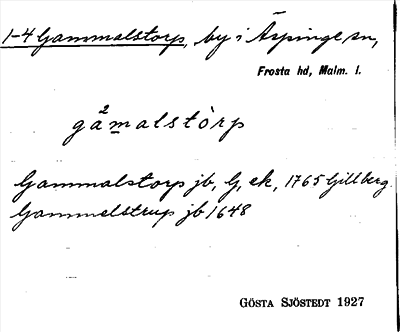 1-4 Gammalstorp, by i Äspinge sn,
Frosta hd, Malm. l.
gåmalstòrp
2
Gammalstorp jb, G, ek, 1765 Gillberg.
Gammelstrup jb 1648
GÖSTA SJÖSTEDT 1927